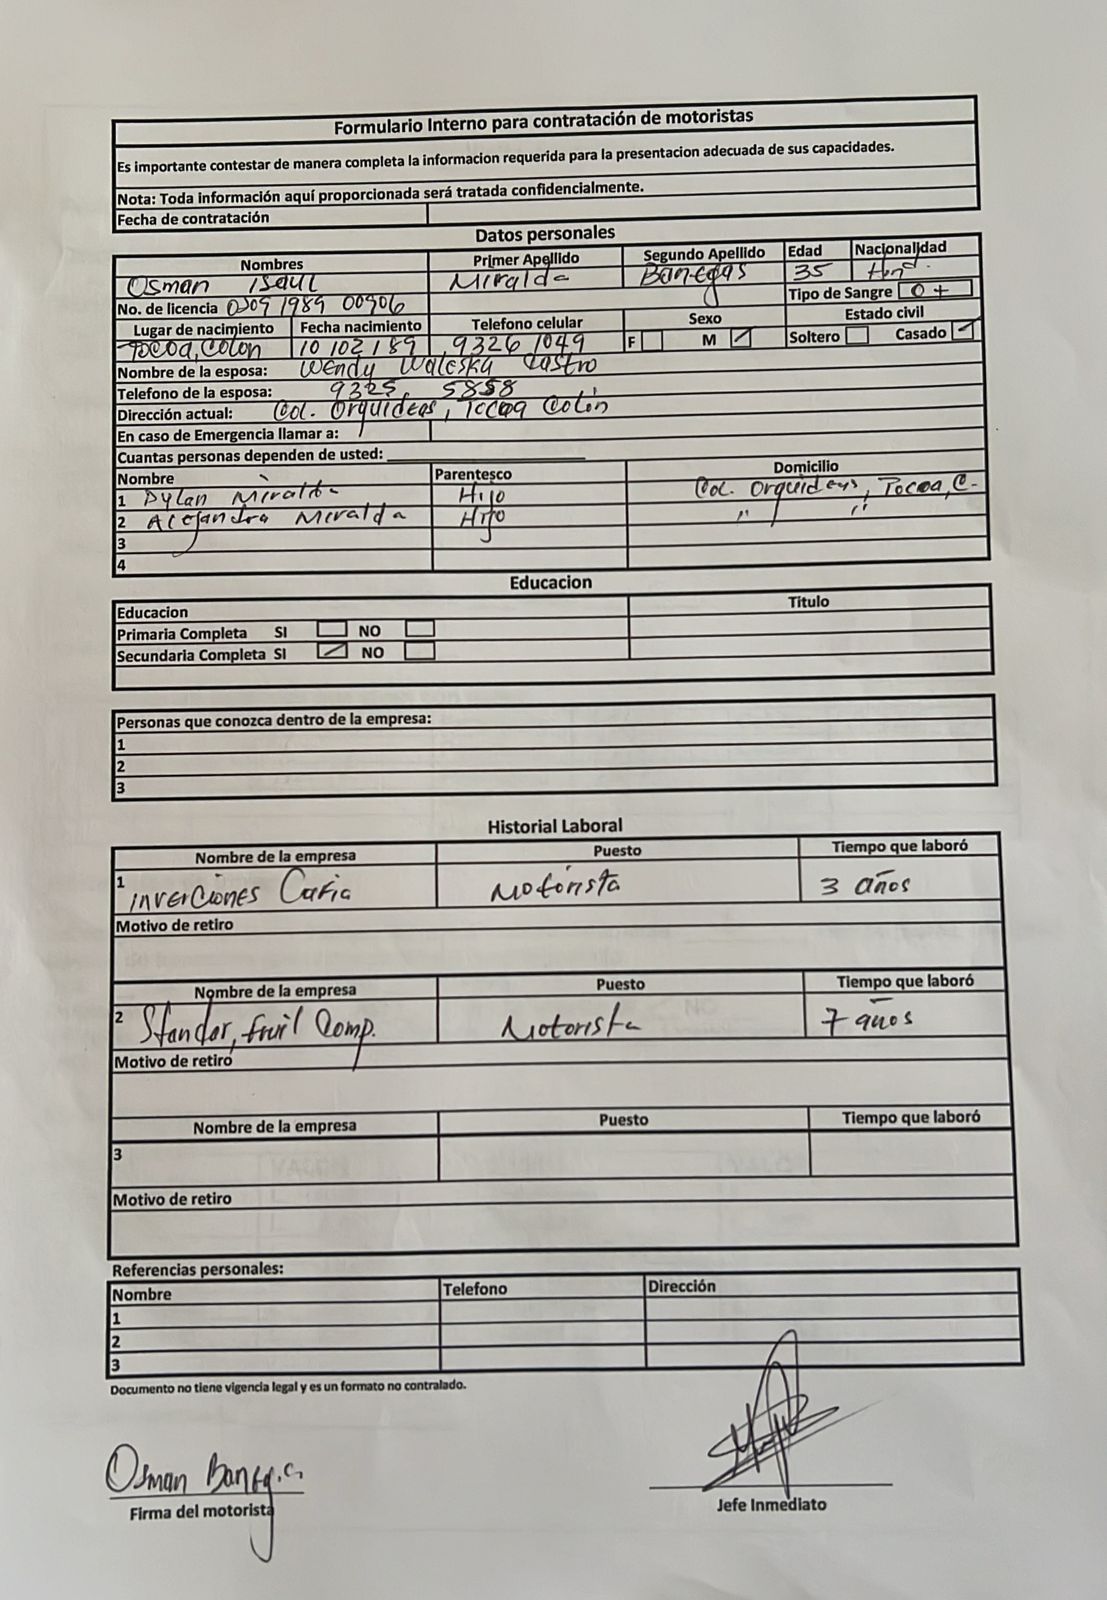 Formulario Interno para contratación de motoristas
Es importante contestar de manera completa la informacion requerida para la presentacion adecuada de sus capacidades.
Nota: Toda información aquí proporcionada será tratada confidencialmente.
Fecha de contratación
Datos personales
Nombres Primer Apellido Segundo Apellido Edad Nacionalidad
Osman Isaul Miralda Banegas 35 Hnd.
No. de licencia 0209 1989 00906 Tipo de Sangre O+
Lugar de nacimiento Fecha nacimiento Telefono celular Sexo Estado civil
Tocoa, Colon 10 102 189 9326 1049 F M Soltero Casado
Nombre de la esposa: Wendy Waleska Castro
Telefono de la esposa: 9325 5858
Dirección actual: Col. Orquideas, Tocoa Colón
En caso de Emergencia llamar a:
Cuantas personas dependen de usted:
Nombre Parentesco Domicilio
1 Dylan Miralda Hijo Col. Orquideas, Tocoa, C.
2 Alejandro Miralda Hijo " "
3
4
Educacion
Educacion Titulo
Primaria Completa SI NO
Secundaria Completa SI NO
Personas que conozca dentro de la empresa:
1
2
3
Historial Laboral
Nombre de la empresa Puesto Tiempo que laboró
1 inverciones Motorista 3 años
Motivo de retiro
Nombre de la empresa Puesto Tiempo que laboró
2 Standar, fruil Comp. Motorista 7 años
Motivo de retiro
Nombre de la empresa Puesto Tiempo que laboró
3
Motivo de retiro
Referencias personales:
Nombre Telefono Dirección
1
2
3
Documento no tiene vigencia legal y es un formato no contralado.
Osman Baneg.s
Firma del motorista Jefe Inmediato